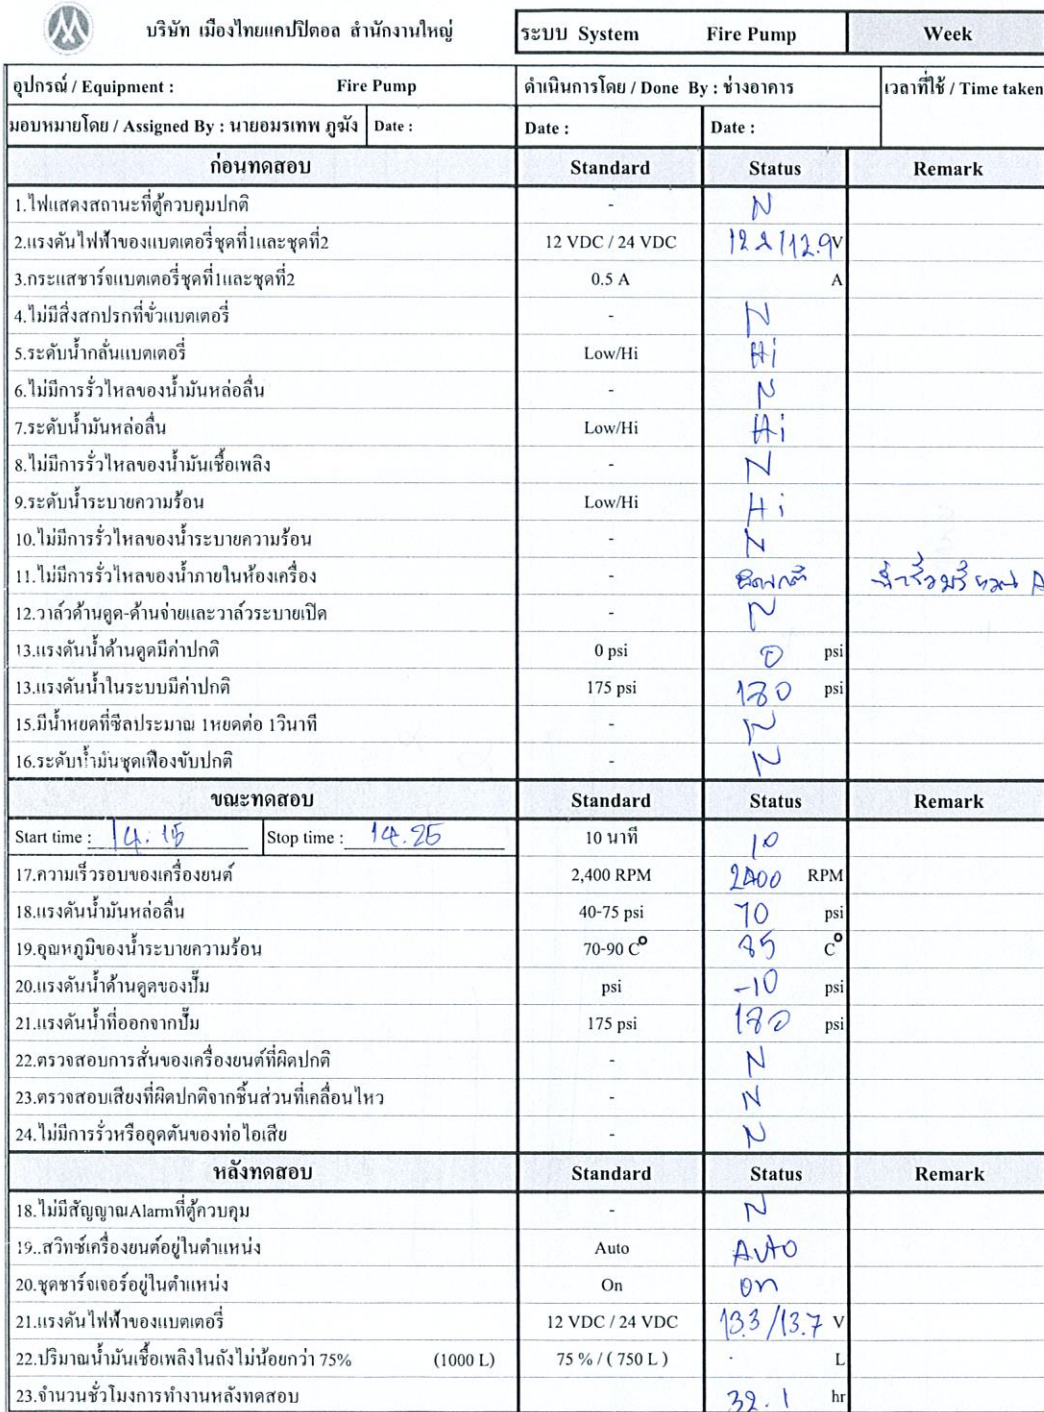 บริษัท เมืองไทยแคปปิตอล สำนักงานใหญ่ ระบบ System Fire Pump Week
อุปกรณ์ / Equipment : Fire Pump ดำเนินการโดย / Done By : ช่างอาคาร เวลาที่ใช้ / Time taken
มอบหมายโดย / Assigned By : นายอมรเทพ ภูฆัง Date : Date : Date :
ก่อนทดสอบ Standard Status Remark
1.ไฟแสดงสถานะที่ตู้ควบคุมปกติ - N
2.แรงดันไฟฟ้าของแบตเตอรี่ชุดที่1และชุดที่2 12 VDC / 24 VDC 12.2/12.9 V
3.กระแสชาร์จแบตเตอรี่ชุดที่1และชุดที่2 0.5 A A
4.ไม่มีสิ่งสกปรกที่ขั้วแบตเตอรี่ - N
5.ระดับน้ำกลั่นแบตเตอรี่ Low/Hi Hi
6.ไม่มีการรั่วไหลของน้ำมันหล่อลื่น - N
7.ระดับน้ำมันหล่อลื่น Low/Hi Hi
8.ไม่มีการรั่วไหลของน้ำมันเชื้อเพลิง - N
9.ระดับน้ำระบายความร้อน Low/Hi Hi
10.ไม่มีการรั่วไหลของน้ำระบายความร้อน - N
11.ไม่มีการรั่วไหลของน้ำภายในห้องเครื่อง - ผิดปกติ
12.วาล์วด้านดูด-ด้านจ่ายและวาล์วระบายเปิด - N
13.แรงดันน้ำด้านดูดมีค่าปกติ 0 psi 0 psi
13.แรงดันน้ำในระบบมีค่าปกติ 175 psi 180 psi
15.มีน้ำหยดที่ซีลประมาณ 1หยดต่อ 1วินาที - N
16.ระดับน้ำมันชุดเฟืองขับปกติ - N
ขณะทดสอบ Standard Status Remark
Start time : 14.15 Stop time : 14.25 10 นาที 10
17.ความเร็วรอบของเครื่องยนต์ 2,400 RPM 2400 RPM
18.แรงดันน้ำมันหล่อลื่น 40-75 psi 70 psi
19.อุณหภูมิของน้ำระบายความร้อน 70-90 C° 85 C°
20.แรงดันน้ำด้านดูดของปั๊ม psi -10 psi
21.แรงดันน้ำที่ออกจากปั๊ม 175 psi 180 psi
22.ตรวจสอบการสั่นของเครื่องยนต์ที่ผิดปกติ - N
23.ตรวจสอบเสียงที่ผิดปกติจากชิ้นส่วนที่เคลื่อนไหว - N
24.ไม่มีการรั่วหรืออุดตันของท่อไอเสีย - N
หลังทดสอบ Standard Status Remark
18.ไม่มีสัญญาณAlarmที่ตู้ควบคุม - N
19..สวิทซ์เครื่องยนต์อยู่ในตำแหน่ง Auto Auto
20.ชุดชาร์จเจอร์อยู่ในตำแหน่ง On on
21.แรงดันไฟฟ้าของแบตเตอรี่ 12 VDC / 24 VDC 13.3/13.7 V
22.ปริมาณน้ำมันเชื้อเพลิงในถังไม่น้อยกว่า 75% (1000 L) 75 % / ( 750 L ) L
23.จำนวนชั่วโมงการทำงานหลังทดสอบ 32.1 hr